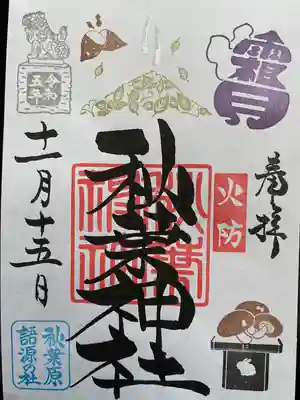 霜月
奉拝
火防
秋葉神社
令和
五年
十一月十五日
秋葉原
語源の社